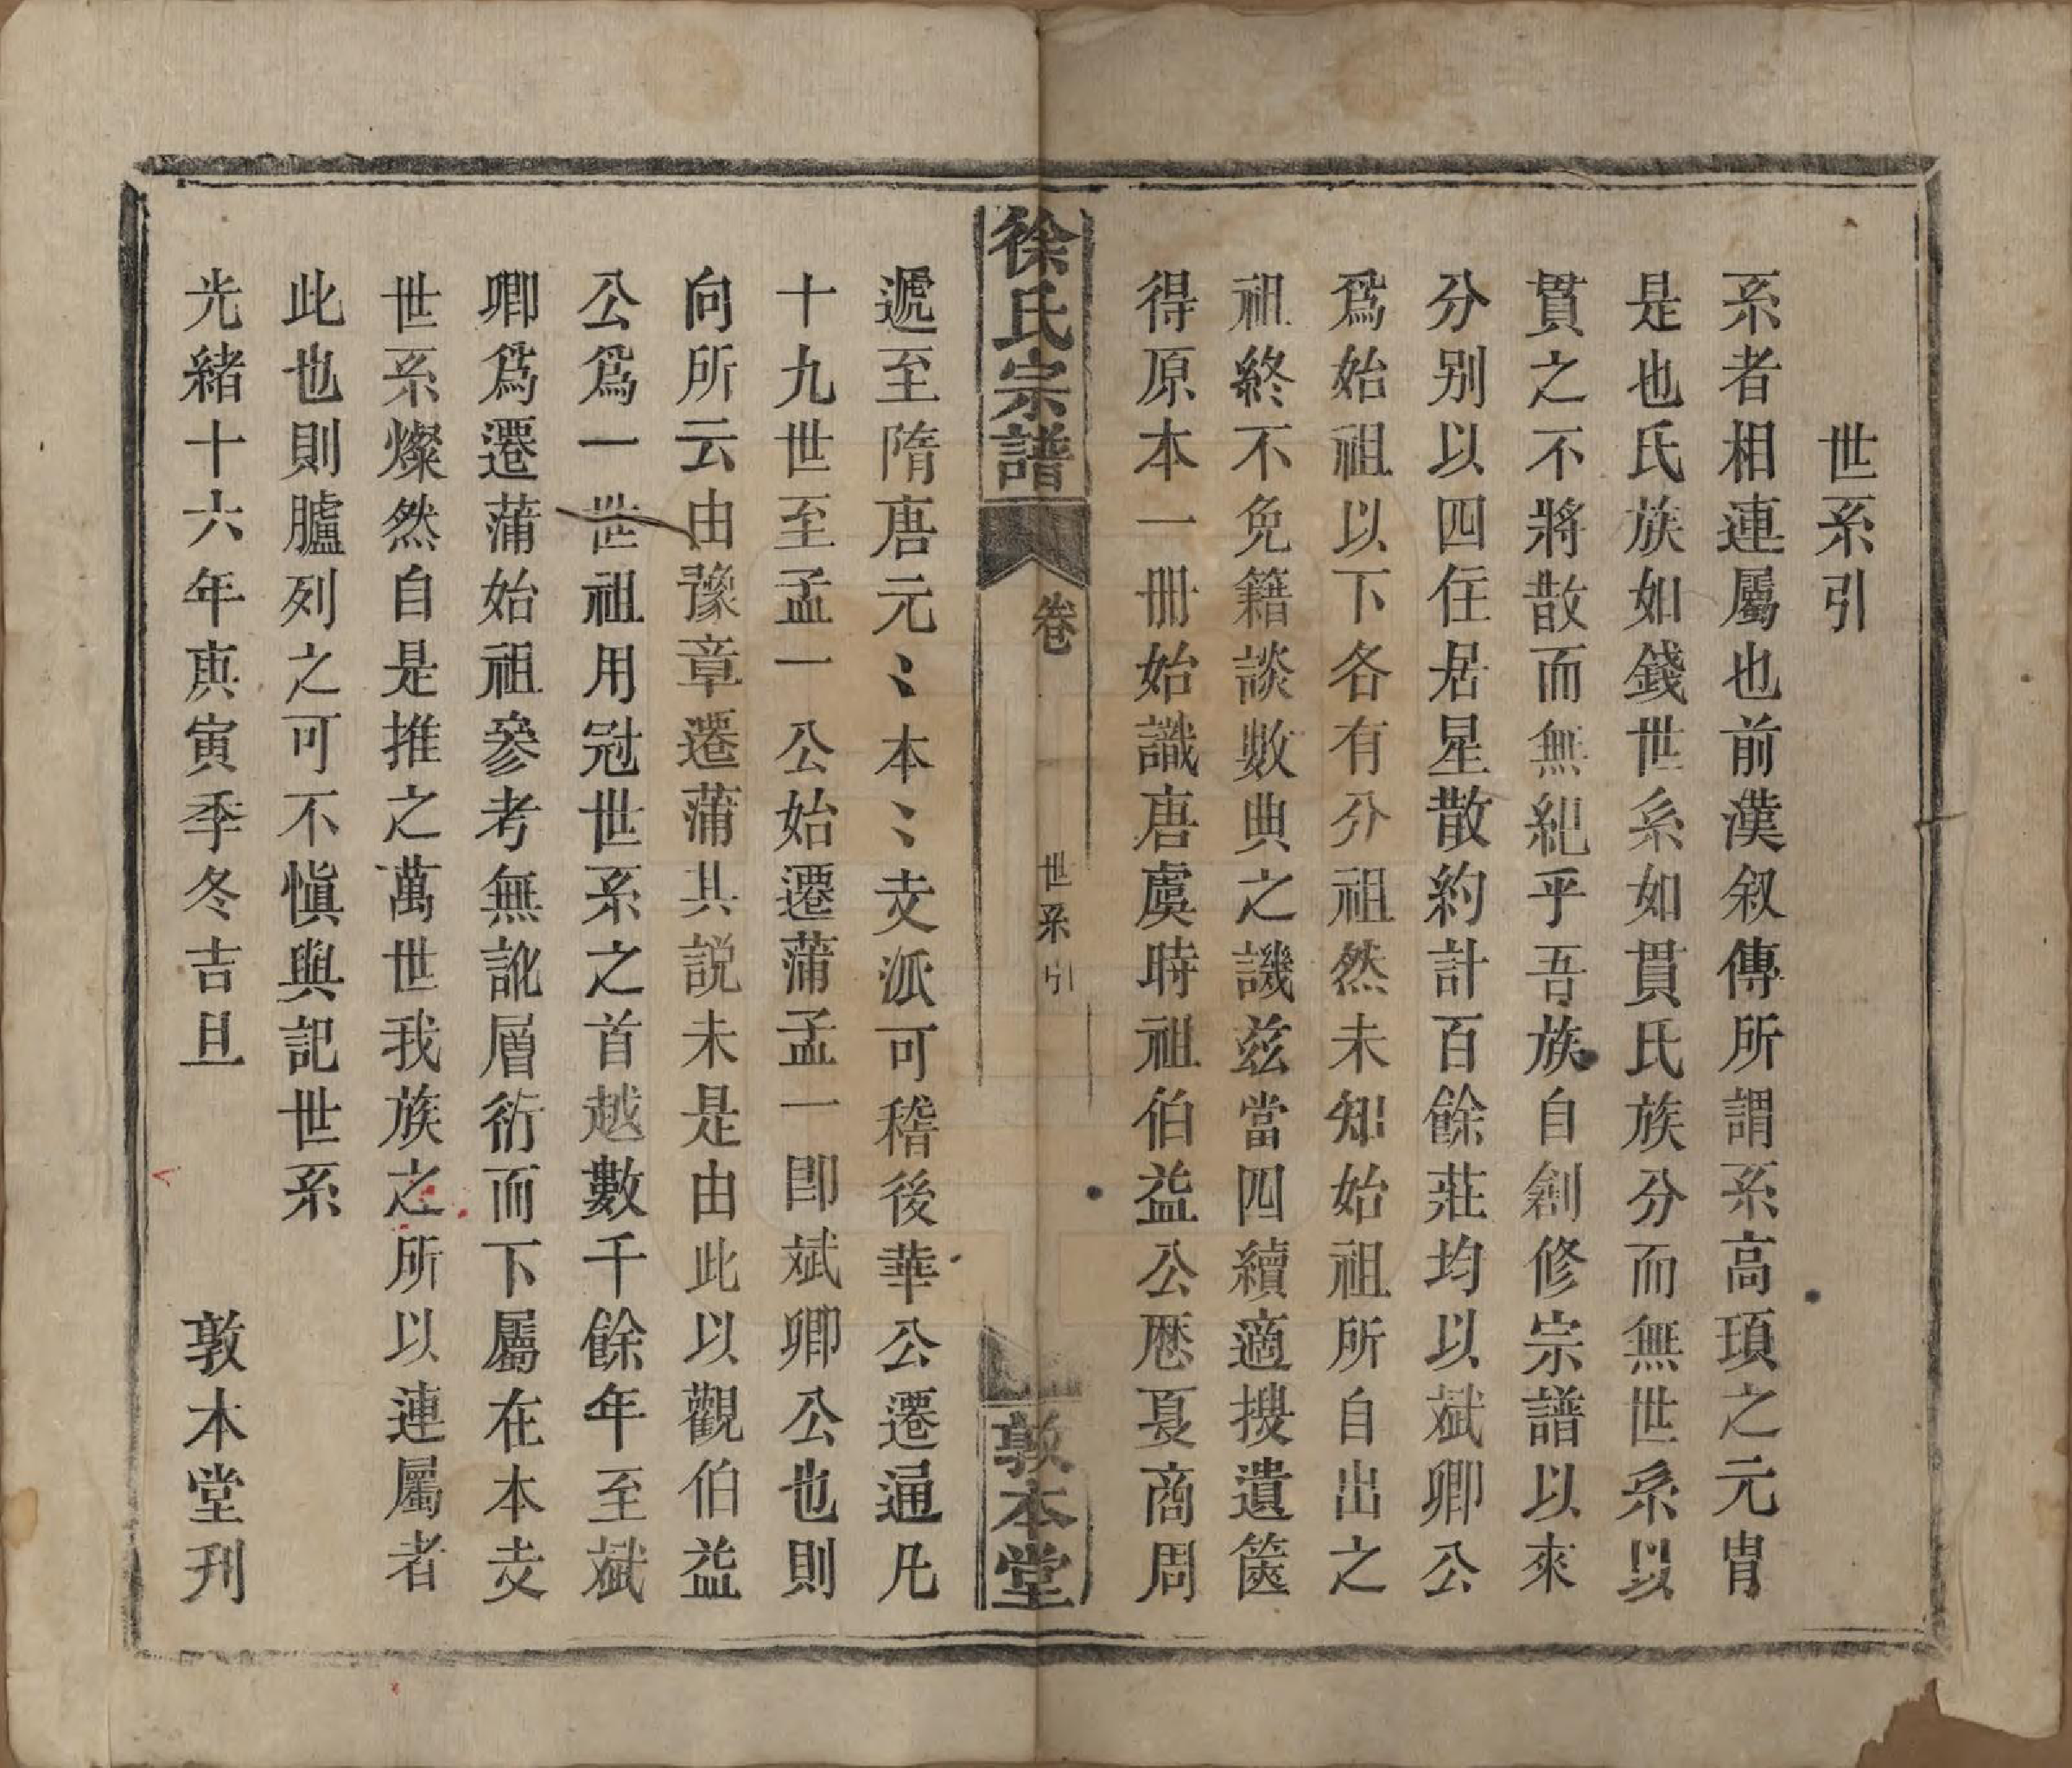 世系引
系者相連屬也前漢叙傳所謂系高頊之元冑
是也氏族如錢世系如貫氏族分而無世系以
貫之不將散而無紀乎吾族自創修宗譜以來
分别以四住居星散約計百餘莊均以斌卿公
爲始祖以下各有分祖然未知始祖所自出之
祖終不免籍談數典之譏兹當四續適搜遺篋
得原本一冊始識唐虞時祖伯益公歷夏商周
徐氏宗譜 卷 世系引 敦本堂
遞至隋唐元〻本〻支派可稽後華公遷通凡
十九世至孟一公始遷蒲孟一卽斌卿公也則
向所云由豫章遷蒲其説未是由此以觀伯益
公爲一世祖用冠世系之首越數千餘年至斌
卿爲遷蒲始祖參考無訛層衍而下屬在本支
世系燦然自是推之萬世我族之所以連屬者
此也則臚列之可不愼與記世系
光緒十六年庚寅季冬吉旦 敦本堂刊